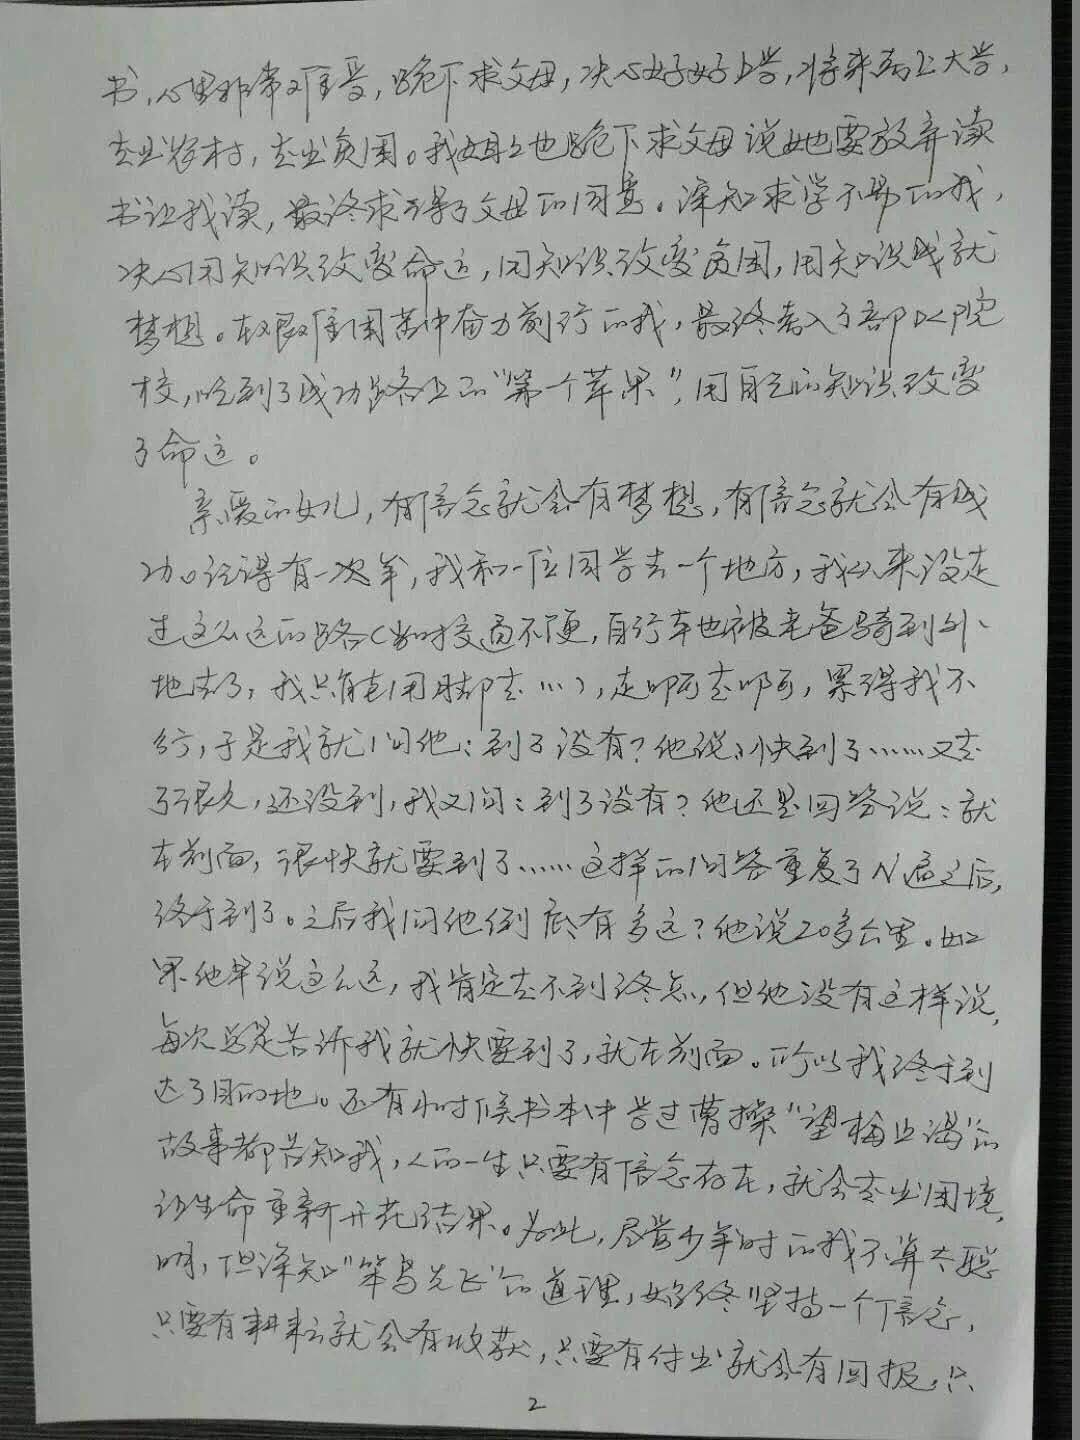 书,心里非常难受,跪下求父母,决心好好上学,将来考上大学,
走出农村,走出贫困。我姐上也跪下求父母说她要放弃读
书让我读,最终求得了父母的同意。深知求学不易的我,
决心用知识改变命运,用知识改变贫困,用知识成就
梦想。在艰难困苦中奋力前行的我,最终考入了部队院
校,吃到了成功路上的“第一个苹果”,用自己的知识改变
了命运。
亲爱的女儿,有信念就会有梦想,有信念就会有成
功。记得有一次年,我和一位同学去一个地方,我从来没走
过这么远的路(当时交通不便,自行车也被老爸骑到外
地去了,我只能用脚走…),走啊走啊,累得我不
行,于是我就问他:到了没有?他说:快到了……又走
了很久,还没到,我又问:到了没有?他还是回答说:就
在前面,很快就要到了……这样的问答重复了N遍之后,
终于到了。之后我问他倒底有多远?他说20多公里。如
果他早说这么远,我肯定走不到终点,但他没有这样说,
每次总是告诉我就快要到了,就在前面。所以我终于到
达了目的地。还有小时候书本中学过曹操“望梅止渴”的
故事都告知我,人的一生只要有信念存在,就会走出困境,
让生命重新开花结果。为此,尽管少年时的我不算太聪
明,但深知“笨鸟先飞”的道理,始终坚持一个信念,
只要有耕耘就会有收获,只要有付出就会有回报,只
2